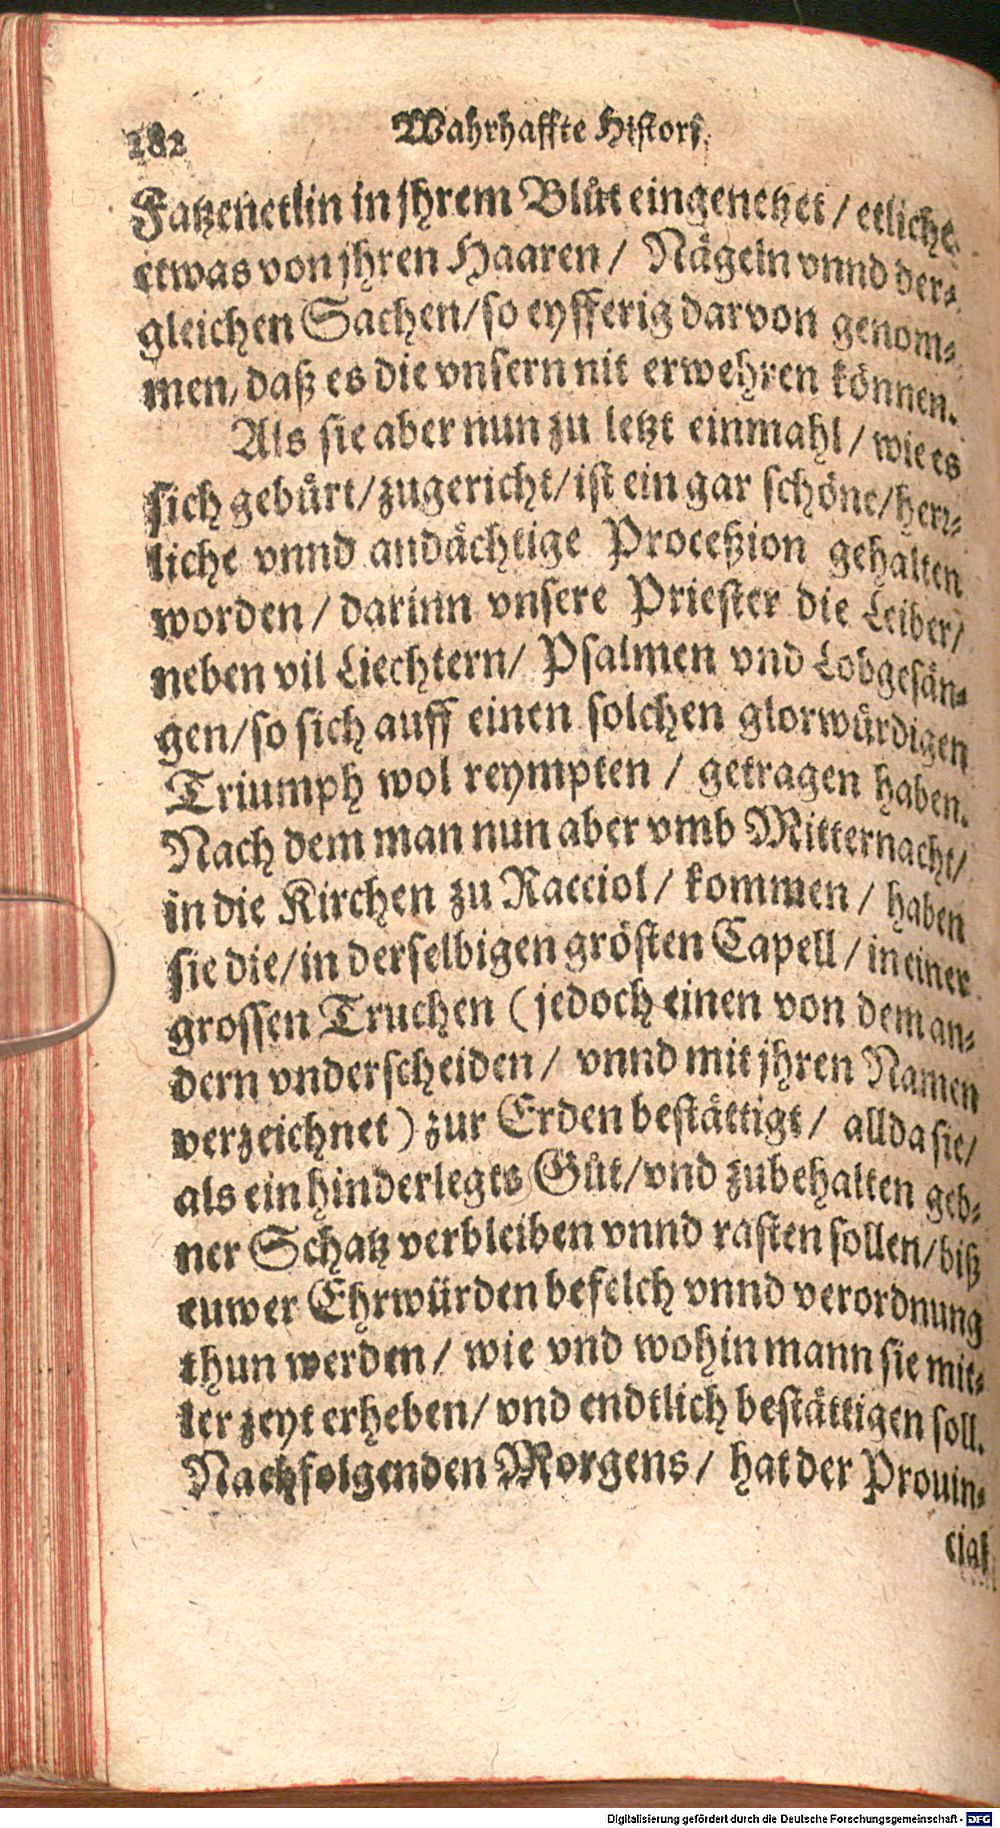 182 Wahrhaffte Histori.
Fatzenetlin in jhrem Blůt eingenetzet / etliche
etwas von jhren Haaren / Nägeln vnnd der-
gleichen Sachen/so eyfferig darvon genom-
men, daß es die vnsern nit erwehren können.
Als sie aber nun zu letzt einmahl / wie es
sich gebürt/zugericht/ist ein gar schöne/herr-
liche vnnd andächtige Proceßion gehalten
worden / darinn vnsere Priester die Leiber/
neben vil Liechtern/ Psalmen vnd Lobgesän-
gen/so sich auff einen solchen glorwürdigen
Triumph wol reympten / getragen haben.
Nach dem man nun aber vmb Mitternacht/
in die Kirchen zu Racciol / kommen / haben
sie die/in derselbigen grösten Capell / in einer
grossen Truchen (jedoch einen von dem an-
dern vnderscheiden / vnnd mit jhren Namen
verzeichnet) zur Erden bestättigt / allda sie/
als ein hinderlegts Gůt/vnd zubehalten geb-
ner Schatz verbleiben vnnd rasten sollen/biß
euwer Ehrwürden befelch vnnd verordnung
thun werden / wie vnd wohin mann sie mit-
ler zeyt erheben/ vnd endtlich bestättigen soll.
Nachfolgenden Morgens / hat der Prouin-
cial
Digitalisierung gefördert durch die Deutsche Forschungsgemeinschaft - DFG